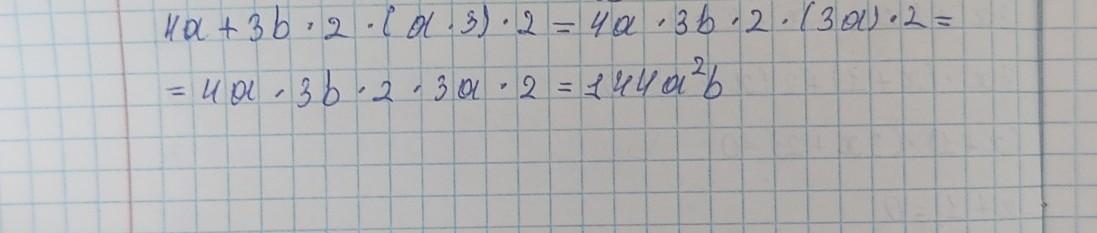 4a + 3b · 2 · (a · 3) · 2 = 4a · 3b · 2 · (3a) · 2 =
= 4a · 3b · 2 · 3a · 2 = 144a²b